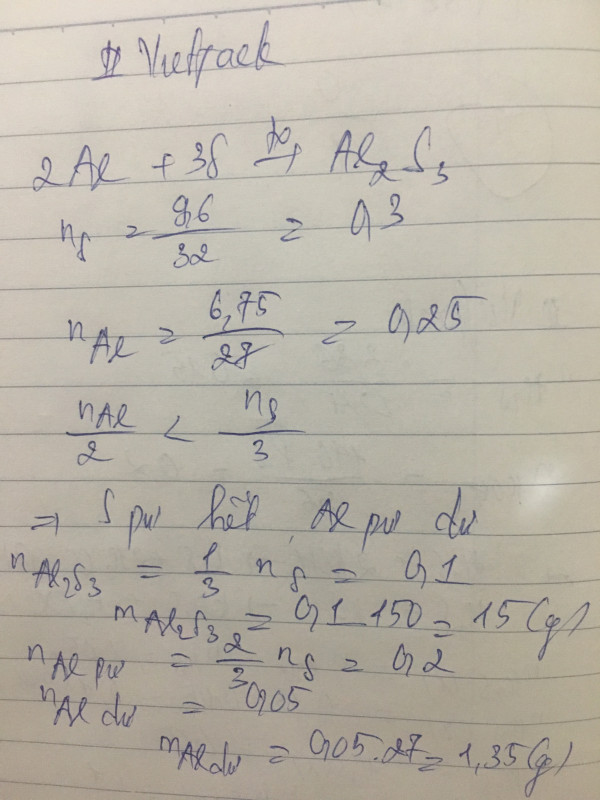 Vietjack
2Al + 3S t° → Al₂S₃
nS = 9,6/32 = 0,3
nAl = 6,75/27 = 0,25
nAl/2 < nS/3
⇒ S pư hết, Al pư dư
nAl₂S₃ = 1/3 nS = 0,1
mAl₂S₃ = 0,1 . 150 = 15 (g)
nAl pư = 2/3 nS = 0,2
nAl dư = 0,05
mAl dư = 0,05 . 27 = 1,35 (g)